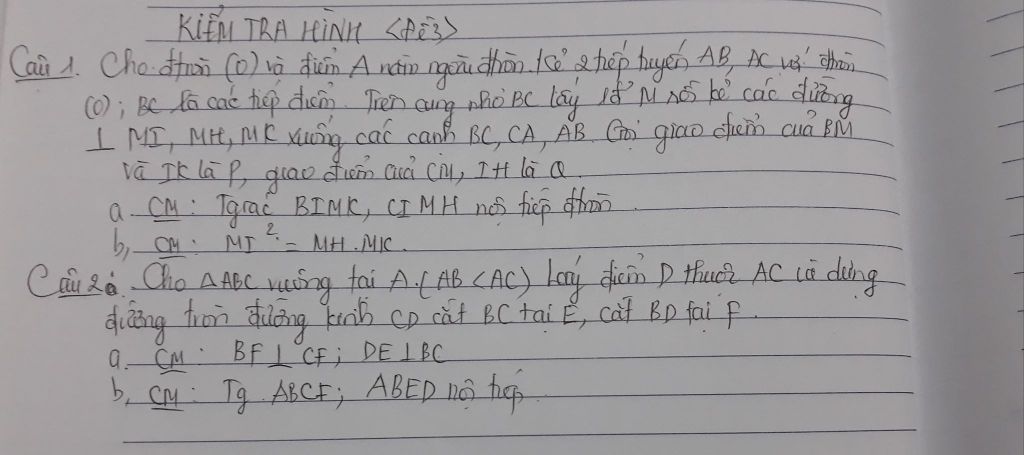 KIỂM TRA HÌNH <Đề3>
Câu 1. Cho đtròn (O) và điểm A nằm ngoài đtròn. Kẻ 2 tiếp tuyến AB, AC với đtròn
(O); BC là các tiếp điểm. Trên cung nhỏ BC lấy 1đ' M rồi kẻ các đường
⊥ MI, MH, MK xuống các cạnh BC, CA, AB. Gọi giao điểm của BM
và IK là P, giao điểm của CM, IH là Q.
a. CM: Tgiác BIMK, CIMH nội tiếp đtròn
b, CM: MI² = MH.MK.
Câu 2: Cho ΔABC vuông tại A. (AB <AC) Lấy điểm D thuộc AC và dựng
đường tròn đường kính CD cắt BC tại E, cắt BD tại F.
a. CM: BF⊥ CF; DE⊥BC
b, CM: Tg ABCF; ABED nội tiếp